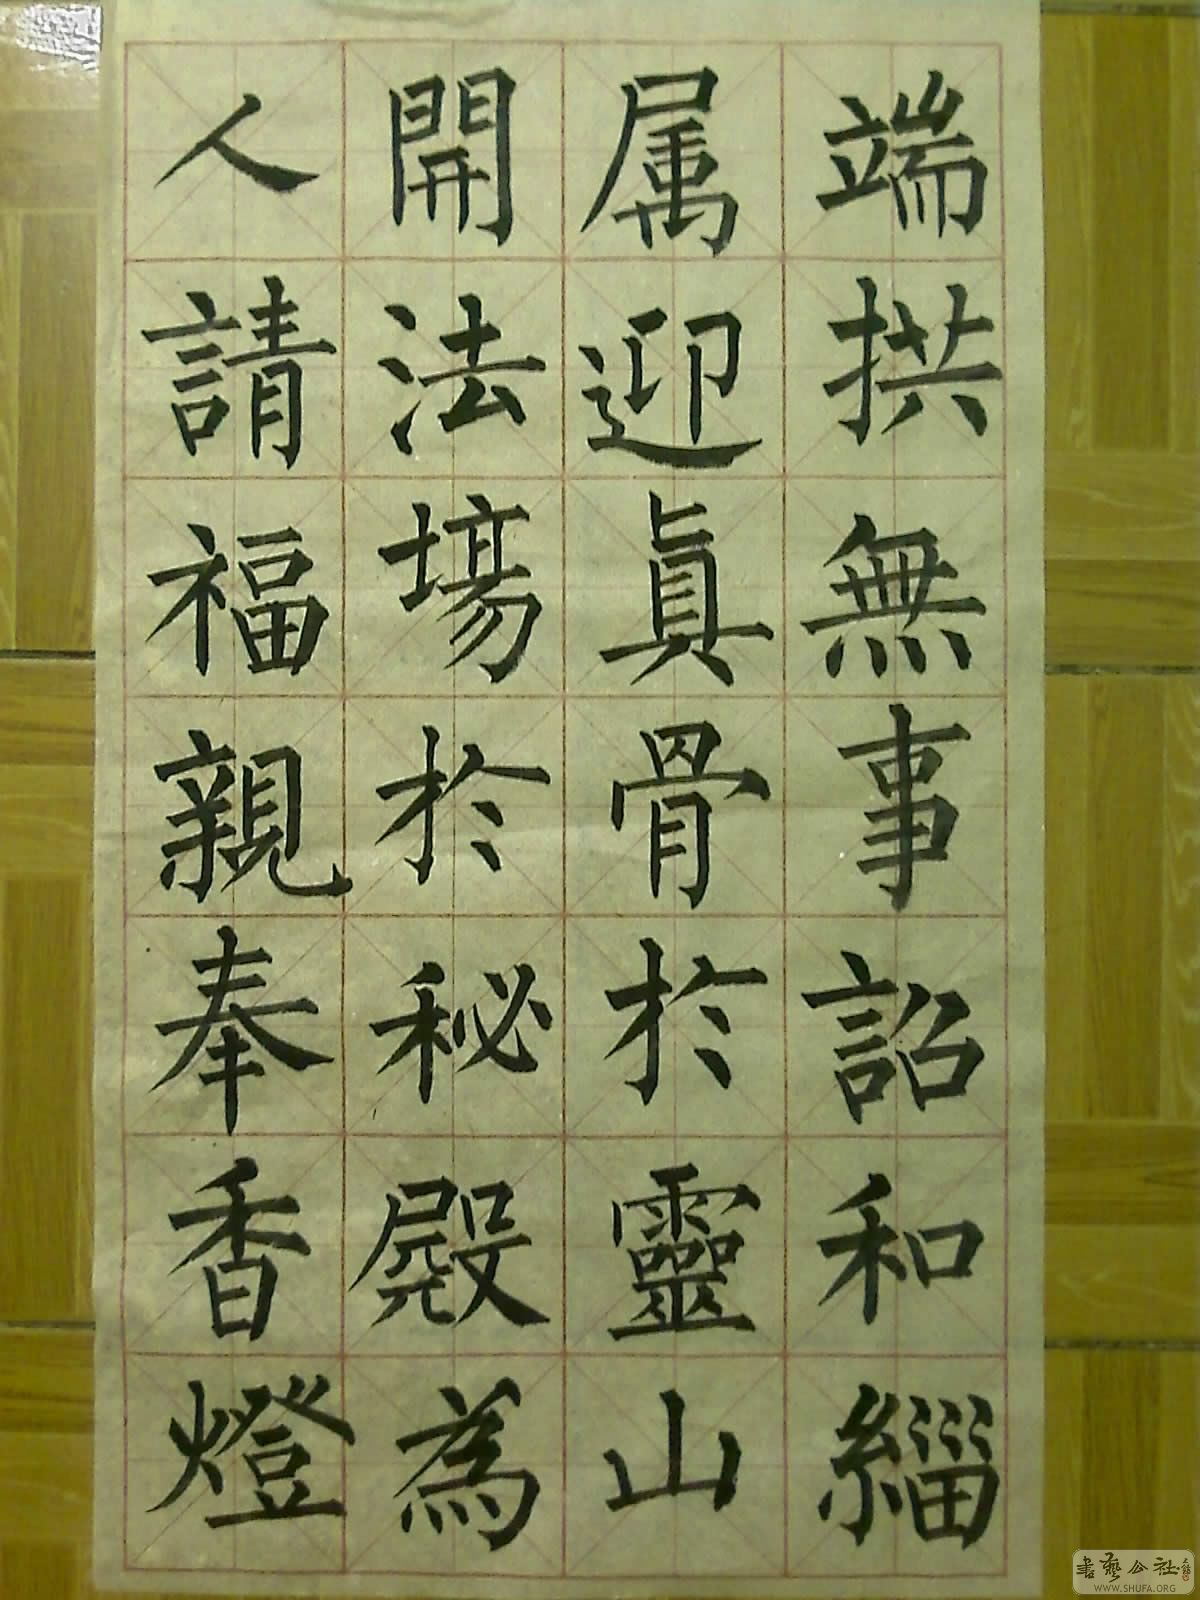 端拱無事詔和緇
属迎眞骨於靈山
開法場於秘殿為
人請福親奉香燈
書藝公社
WWW.SHUFA.ORG